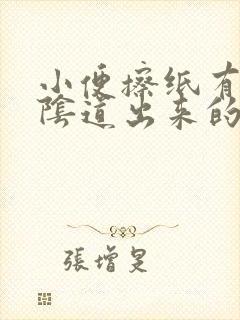 小便擦纸有
陰道出来的
張增旻